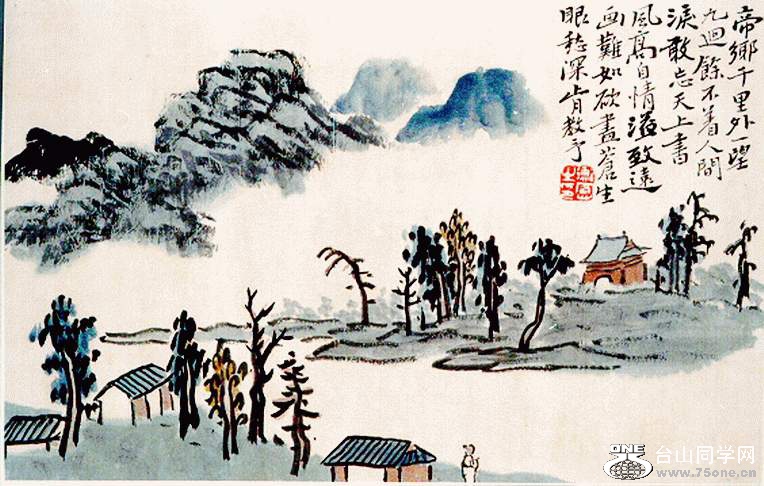 帝鄉千里外望
九迴餘不着人間
淚敢忘天上書
風高自情溢致遠
画難如欲畫蒼生
眼愁深肯教予
ONE
台山同学网
www.75one.cn